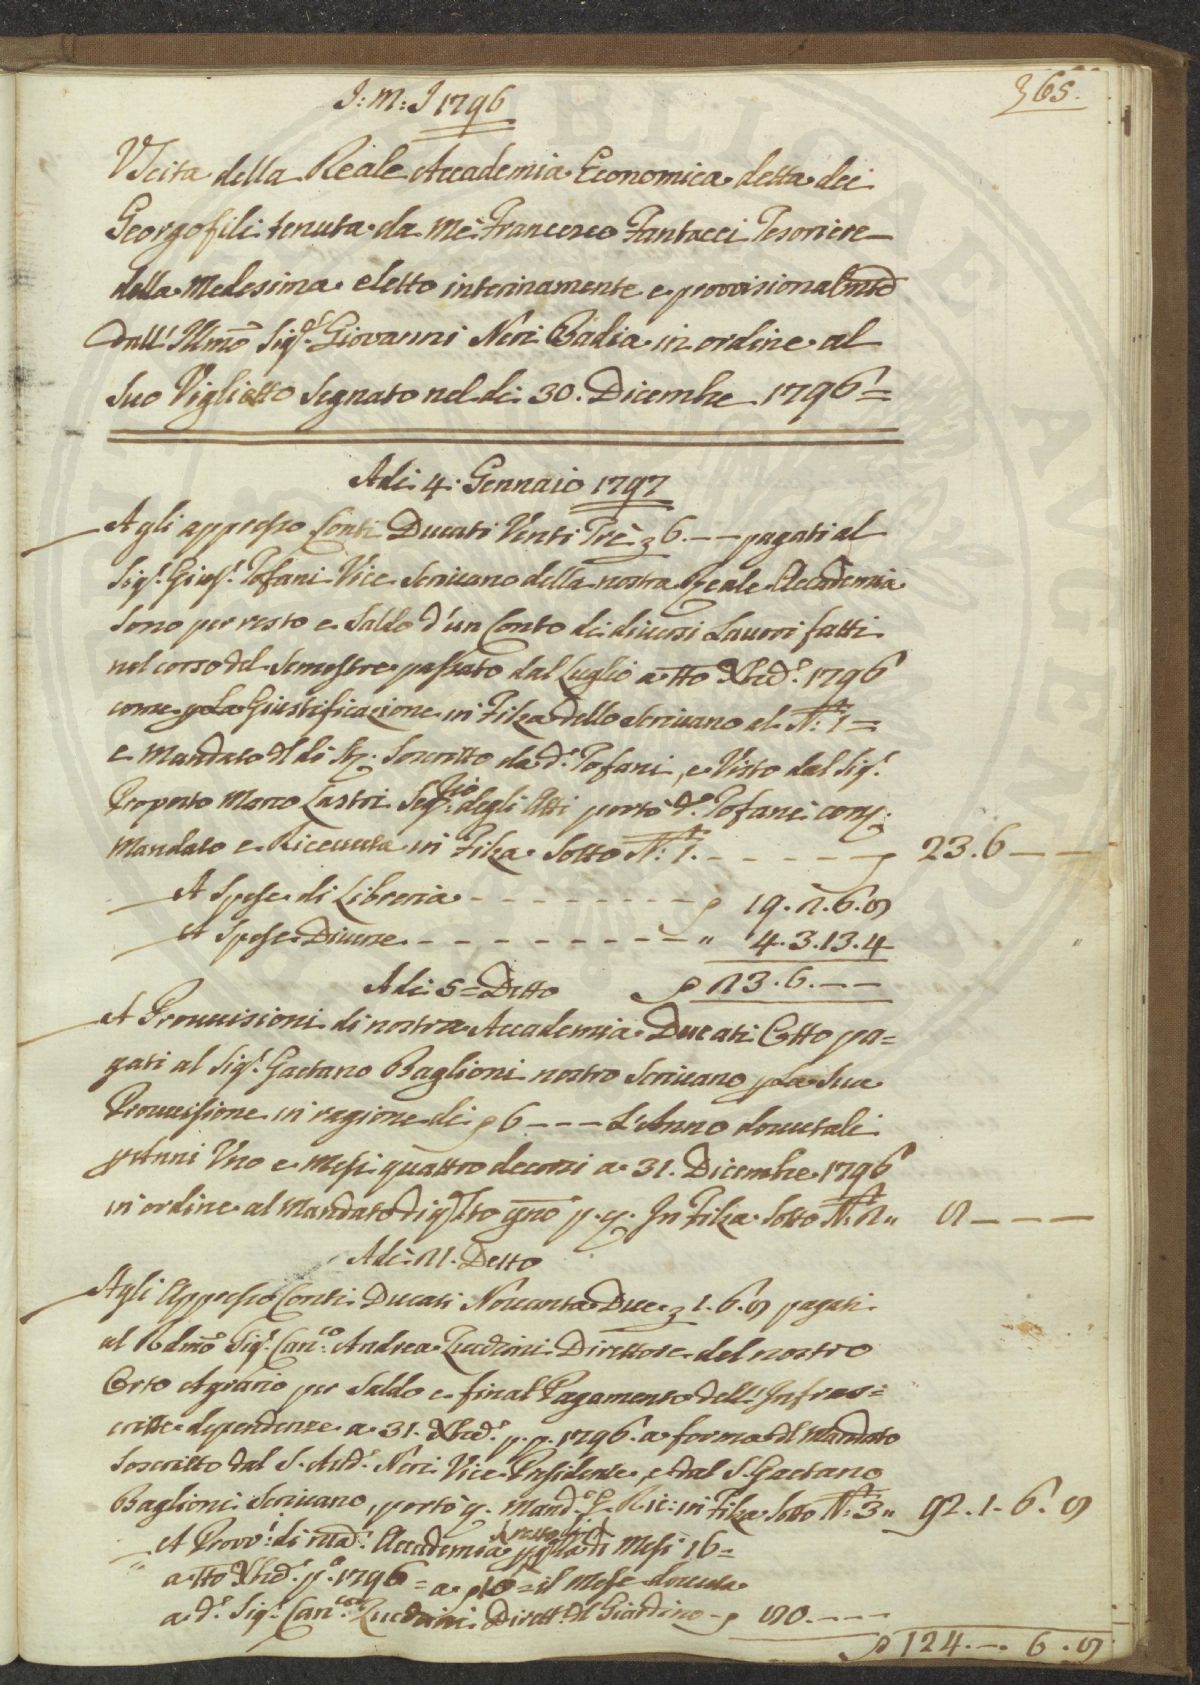 365.
J: M: J 1796
Vscita della Reale Accademia Economica detta dei
Georgofili tenuta da Me Francesco Fantacci Tesoriere
della Medesima eletto interinamente e provvisionalmte
dall' Illmo Sigr. Giovanni Neri Badia in ordine al
suo Viglietto segnato nel dì 30. Dicembre 1796 =
Adi 4. Gennaio 1797
Agli appresso Conti Ducati Venti Trè 6. — — pagati al
Sigr. Giusp. Tofani Vice Scrivano della nostra Reale Accademia
sono per resto e saldo d'un Conto di diversi Lavori fatti
nel corso del Semestre passato dal Luglio a tto Xbre d.º 1796
come p. La Giustificazione in Filza dello Scrivano al N.º 1 =
e Mandato del dì Soscritto da d.º Tofani, e Visto dal Sigr.
Proposto Marco Lastri Segrio degli Atti portò d.º Tofani con
Mandato e Ricevuta in Filza sotto N.º 1. — — — — — 23.6 — —
A Spese di Libreria - - - - - - - - - 19. 2. 6. 8
A Spese Diverse - - - - - - - - - " 4. 3. 13. 4
23. 6. — —
Adi 5 = Detto
A Provvisioni di nostra Accademia Ducati Otto pa=
gati al Sigr. Gaetano Baglioni nostro Scrivano p. La Sua
Provvisione in ragione di 6 — — — L'Anno dovutali
p. Anni Uno e Mesi quattro decorsi a 31. Dicembre 1796
in ordine al Mandato di q.sto gno p. p. In Filza sotto N.º 2 " 8 — — —
Adi 21. Detto
Agli Appresso Conti Ducati Novanta Due 1. 6. 8 pagati
al Rdmo Sigr. Canco. Andrea Zucchini Direttore del nostro
Orto Agrario per Saldo e final Pagamento dell' Infras=
critte dependenze a 31. Xbre d.º p. p. 1796. a forma del Mandato
Soscritto dal S. Aud.e Neri Vice Presidente, e dal S. Gaetano
Baglioni Scrivano, portò Mand.º e Ric: in Filza sotto N.º 3 " 92. 1. 6. 8
A Provv.i di Accademia Mesi 16 =
a tto Xbre p.º 1796 = a 10 = il Mese dovuta
a d.º Sigr. Canco. Zucchini Dirett.e del Giardino 20. — — —
124. — 6. 8